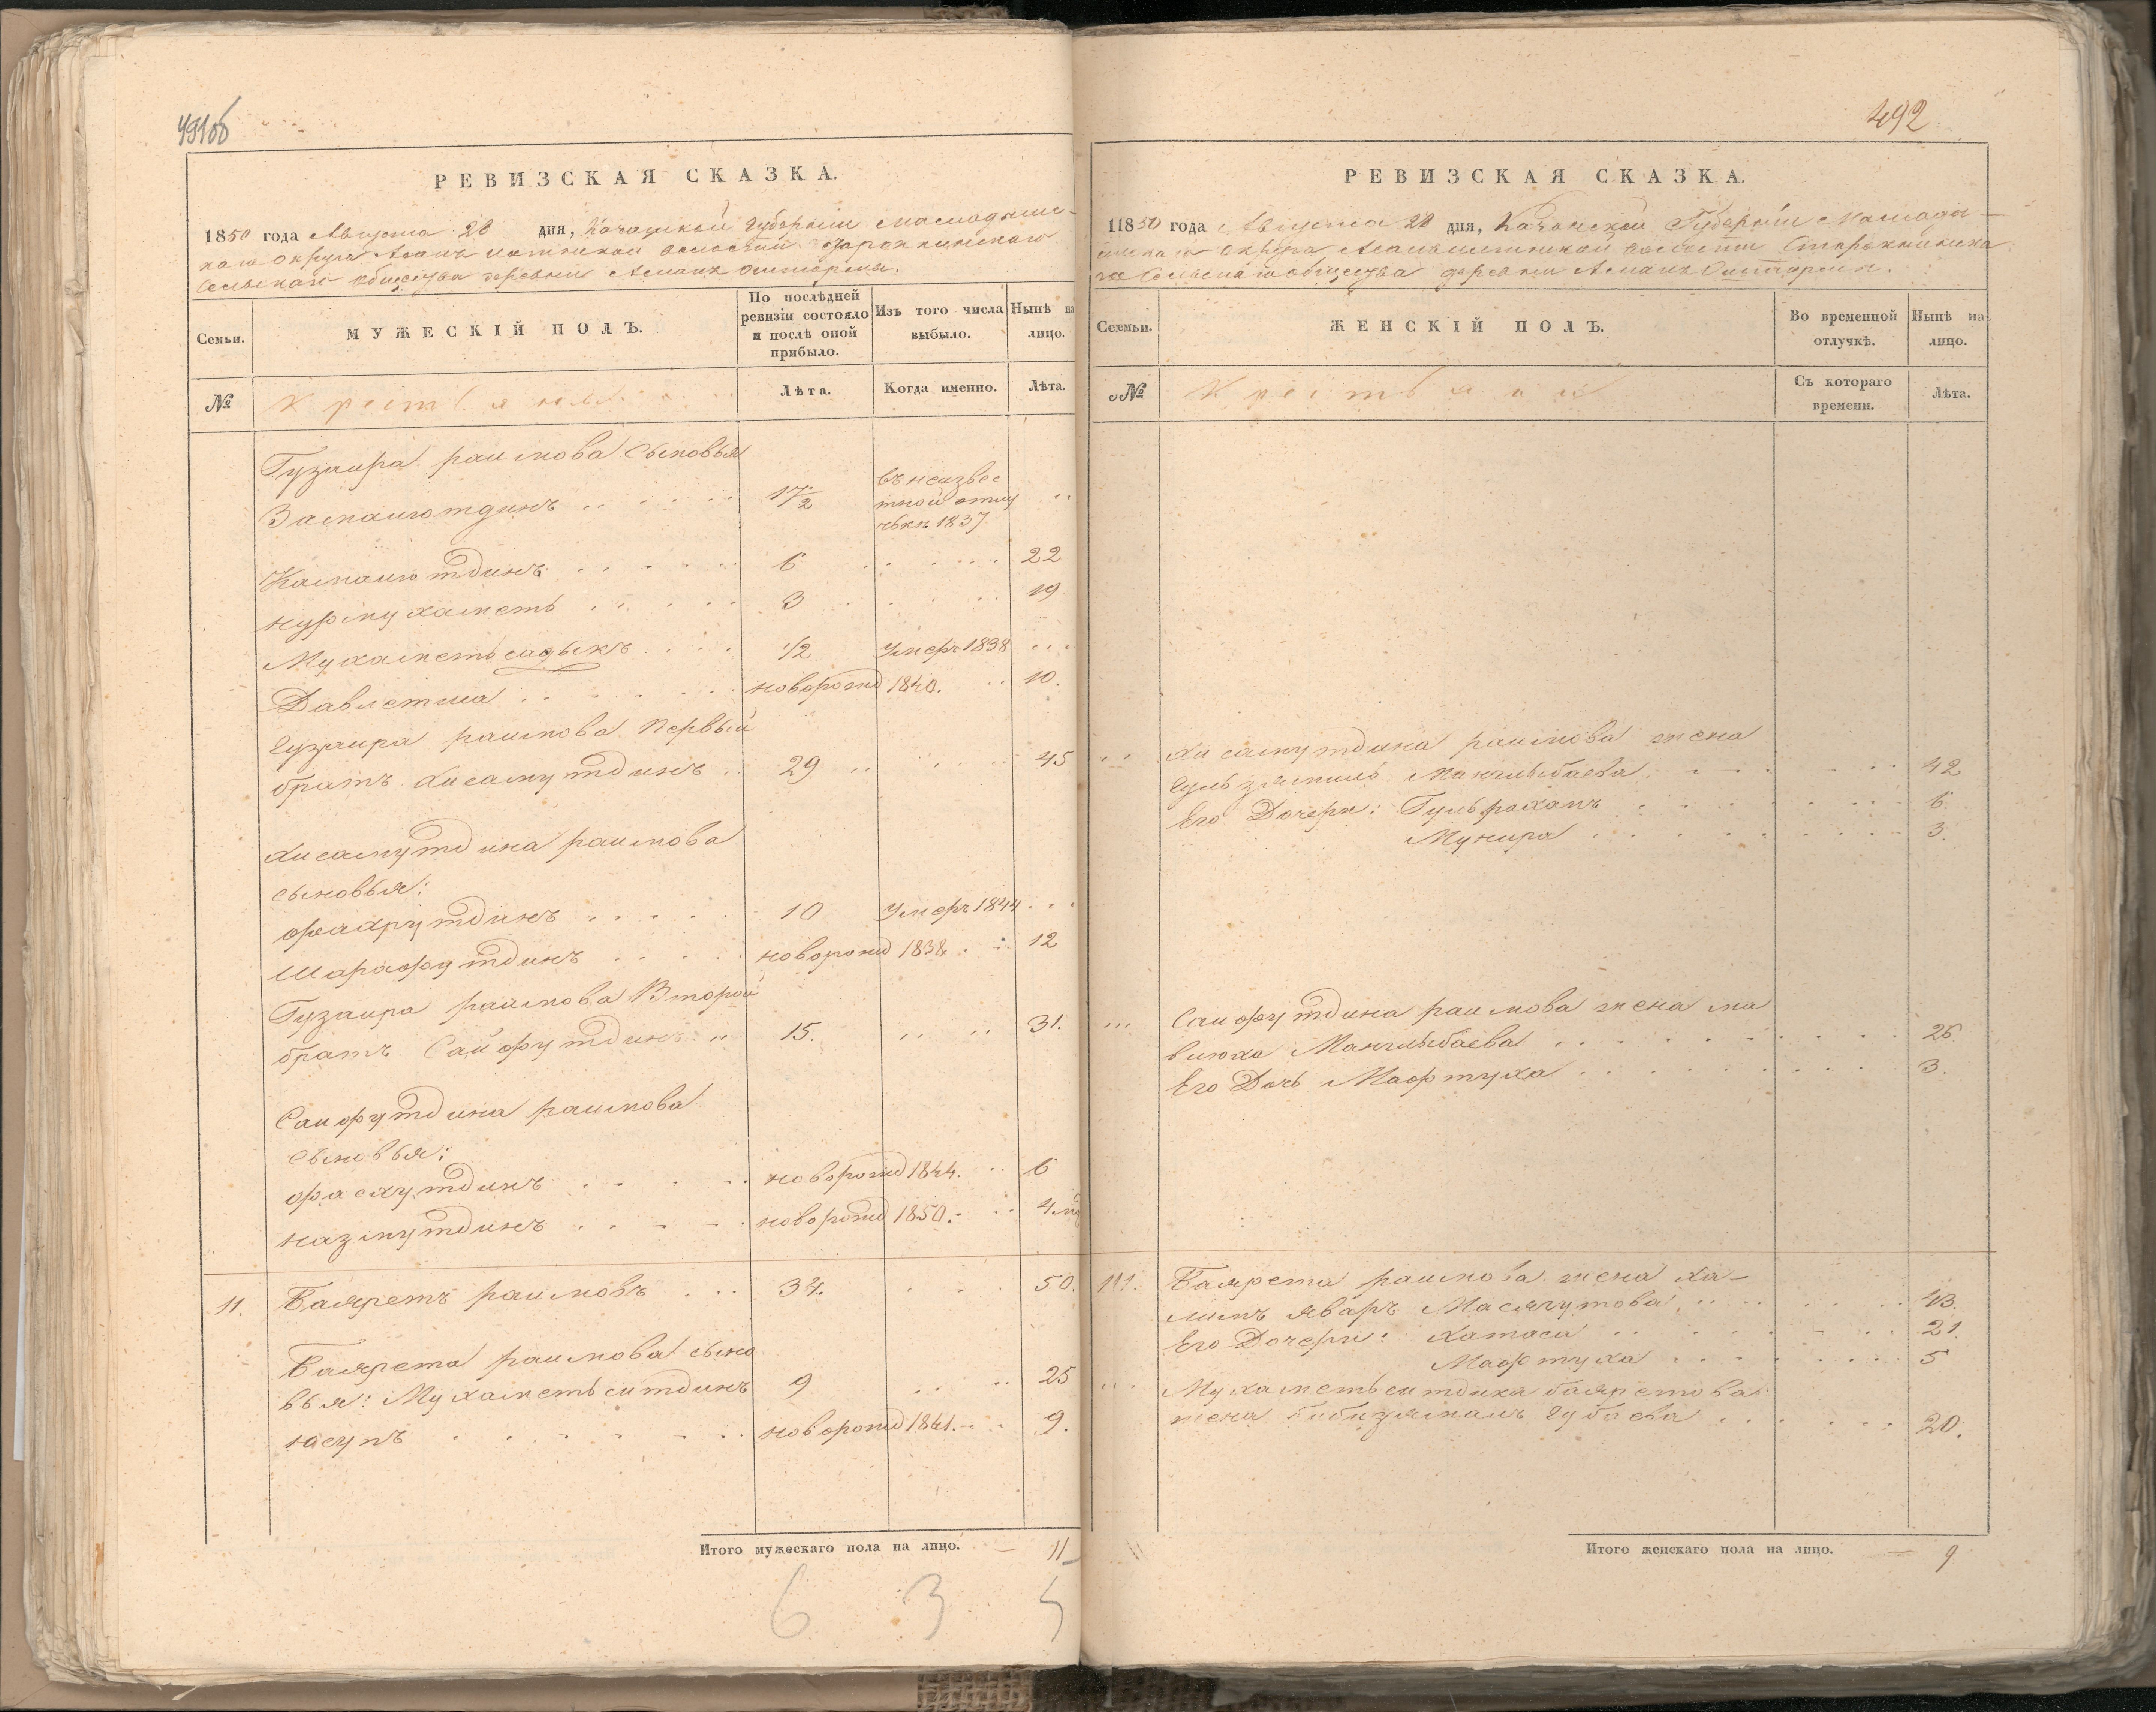 491об
РЕВИЗСКАЯ СКАЗКА.
1850 года Августа 28 дня, Казанской Губерніи Мамадыш-
скаго Округа волости
Сельскаго общества деревни
Семьи.
МУЖЕСКІЙ ПОЛЪ.
По послѣдней ревизіи состояло и послѣ оной прибыло.
Изъ того числа выбыло.
Нынѣ на лицо.
№
Крестьяне
Лѣта.
Когда именно.
Лѣта.
Гузаира раимова сыновья
Замалютдинъ 17/2 въ неизвес
тной отлу
чькѣ 1837
Камалютдинъ 6 22
нурмухаметь 3 19
Мухаметьсадыкъ 1/2 умеръ 1838
Давлетша новорожд 1840. 10.
Гузаира раимова Первый
братъ Хисамутдинъ 29 45
Хисамутдина раимова
сыновья:
фахрутдинъ 10 умеръ 1844
Шарафутдинъ новорожд 1838 12
Гузаира раимова Второй
братъ Сайфутдинъ 15. 31.
Саифутдина раимова
сыновья:
фасхутдинъ новорожд 1844. 6
назмутдинъ новорожд 1850.
11. Баяретъ раимовъ 34. 50.
Баярета раимова сыно
вья: Мухаметьситдикъ 9 25
юсупъ новорожд 1841. 9.
Итого мужескаго пола на лицо. — 11
6 3 5
492
РЕВИЗСКАЯ СКАЗКА.
11850 года Августа 28 дня, Казанской Губерніи Мамады-
шскаго округа волости
Сельскаго общества деревни
Семьи.
ЖЕНСКІЙ ПОЛЪ.
Во временной отлучкѣ.
Нынѣ на лицо.
№
Крестьяне
Съ котораго времени.
Лѣта.
Хисамутдина раимова жена
Манчлыбаева 42
Его Дочери: 6.
Мунира 3.
Саифутдина раимова жена ма
Манчлыбаева 26.
Его Дочь Мафтуха 3.
11. Баярета раимова жена ха-
43.
Его Дочери: 21.
Мафтуха 5
Мухаметьситдика баяретова
жена 20.
Итого женскаго пола на лицо. — 9